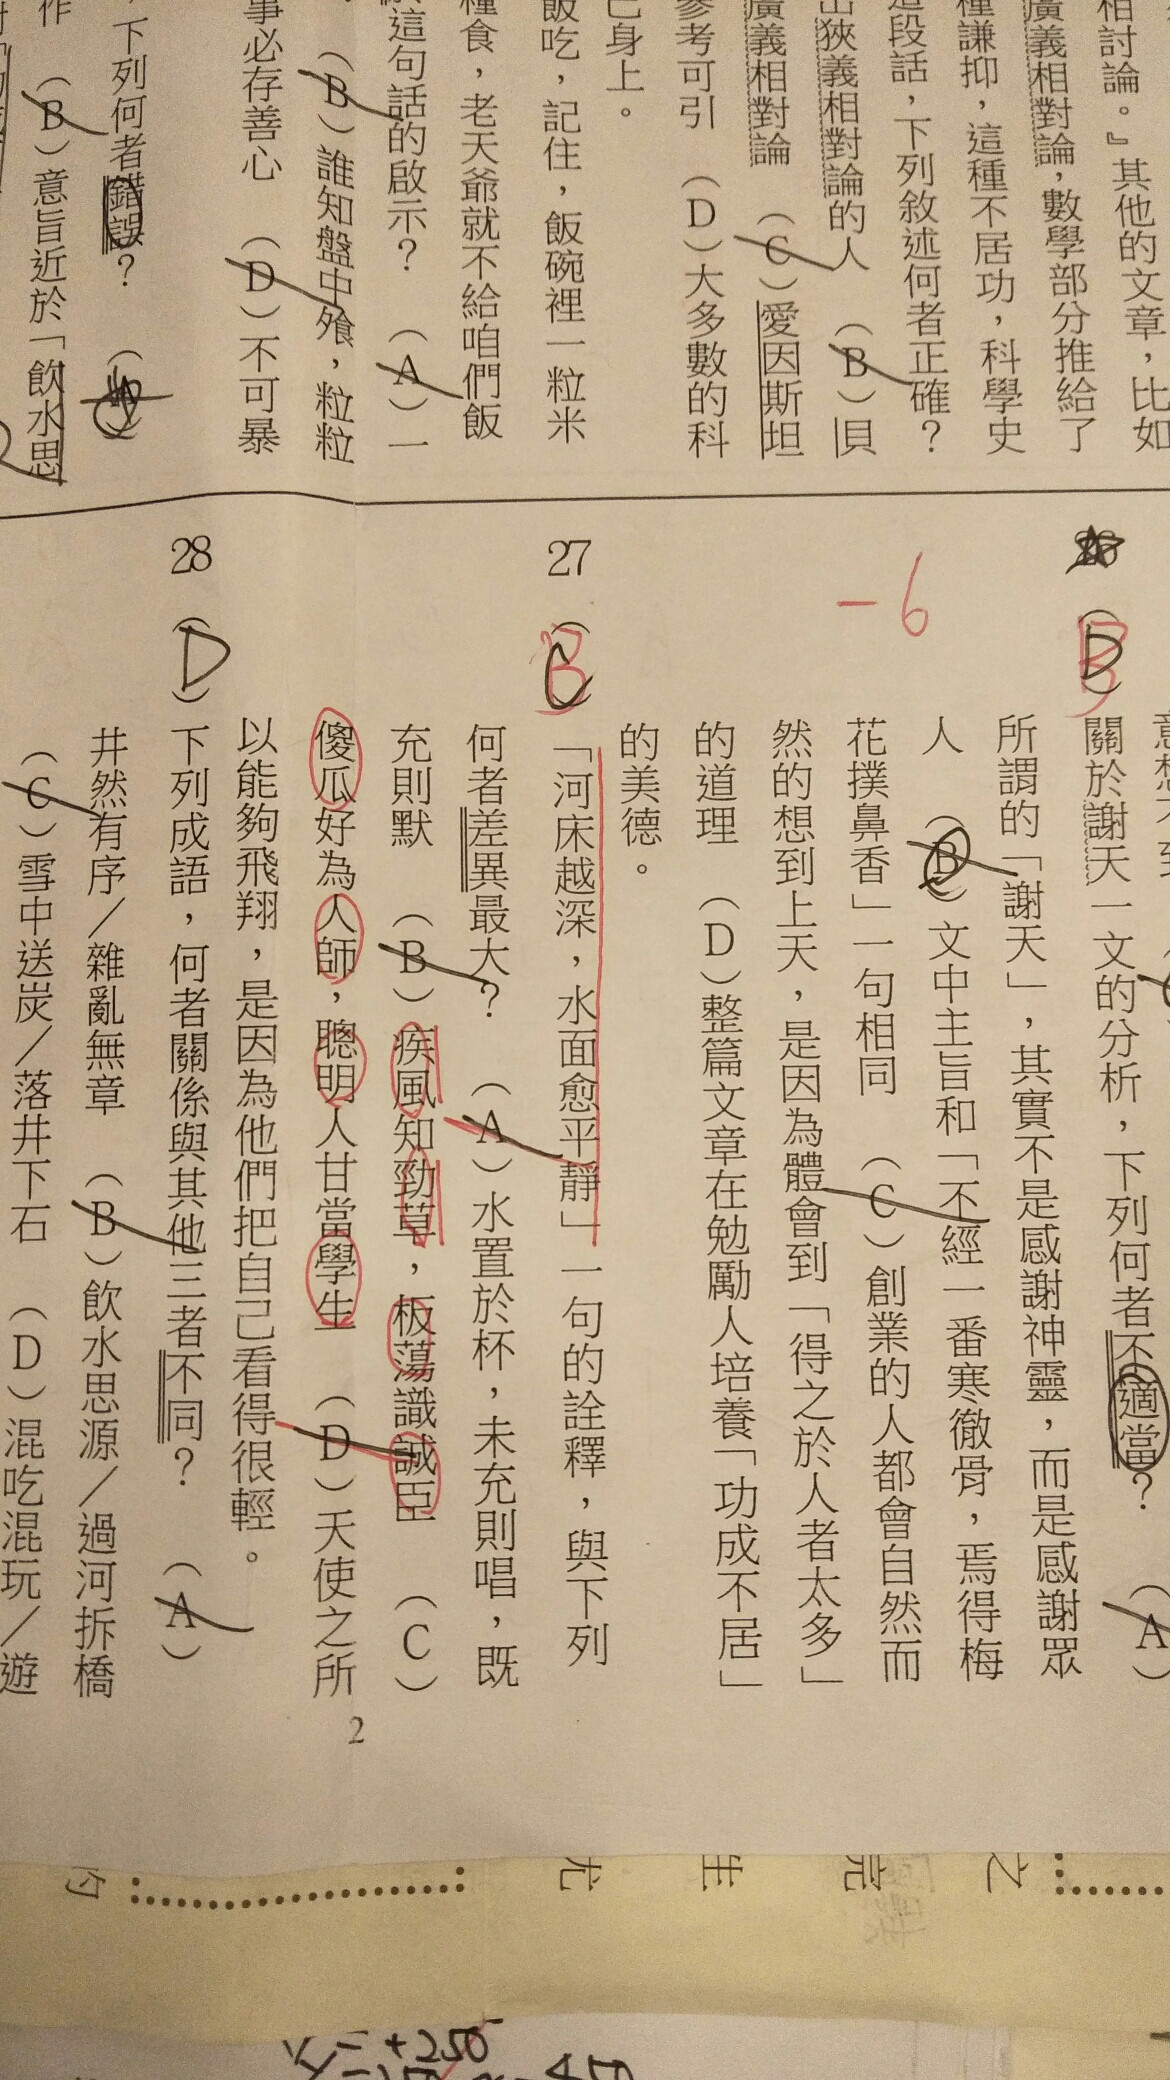 相討論。』其他的文章，比如
廣義相對論，數學部分推給了
種謙抑，這種不居功，科學史
這段話，下列敘述何者正確？
出狹義相對論的人　（B）貝
廣義相對論　（C）愛因斯坦
參考可引　（D）大多數的科
己身上。
飯吃，記住，飯碗裡一粒米
糧食，老天爺就不給咱們飯
這句話的啟示？　（A）一
（B）誰知盤中飧，粒粒
事必存善心　（D）不可暴
，下列何者錯誤？　（
作　（B）意旨近於「飲水思
26（D）關於謝天一文的分析，下列何者不適當？　（A）
B
所謂的「謝天」，其實不是感謝神靈，而是感謝眾
人　（B）文中主旨和「不經一番寒徹骨，焉得梅
花撲鼻香」一句相同　（C）創業的人都會自然而
然的想到上天，是因為體會到「得之於人者太多」
的道理　（D）整篇文章在勉勵人培養「功成不居」
的美德。
-6
27（C）「河床越深，水面愈平靜」一句的詮釋，與下列
B
何者差異最大？　（A）水置於杯，未充則唱，既
充則默　（B）疾風知勁草，板蕩識誠臣　（C）
傻瓜好為人師，聰明人甘當學生　（D）天使之所
以能夠飛翔，是因為他們把自己看得很輕。
28（D）下列成語，何者關係與其他三者不同？　（A）
井然有序／雜亂無章　（B）飲水思源／過河拆橋
（C）雪中送炭／落井下石　（D）混吃混玩／遊
2